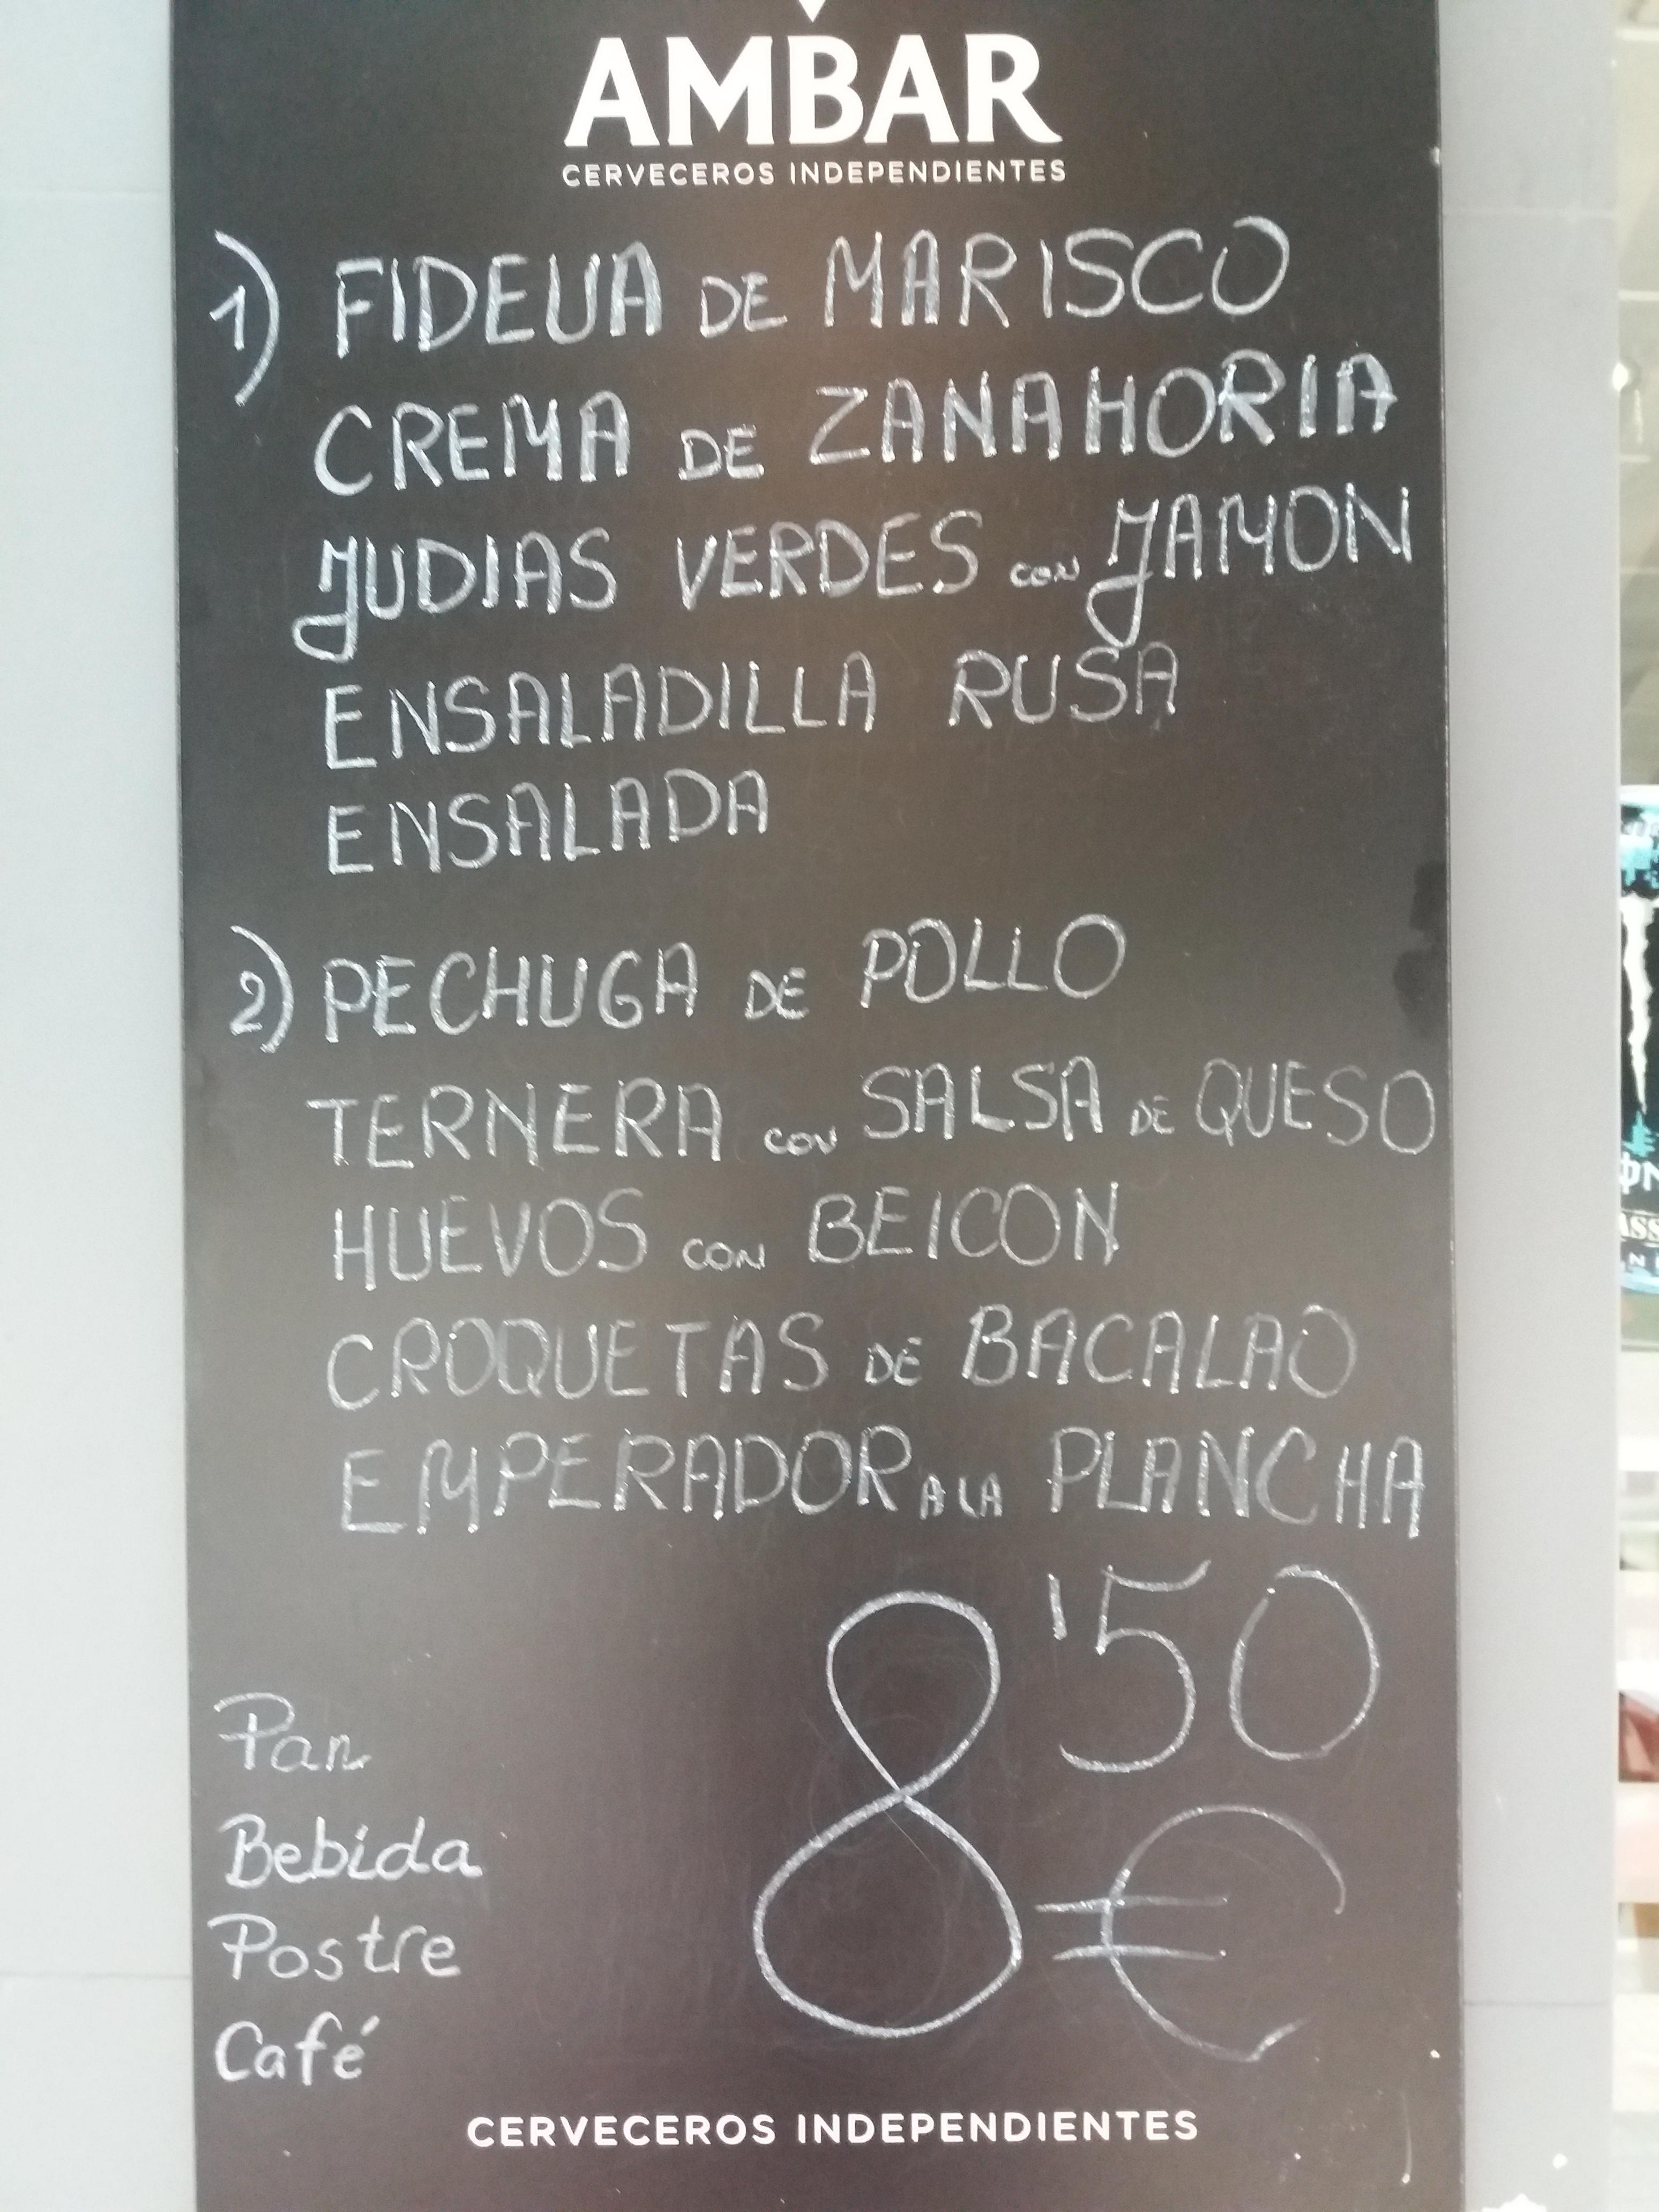 AMBAR
CERVECEROS INDEPENDIENTES
1) FIDEUA DE MARISCO
CREMA DE ZANAHORIA
JUDIAS VERDES CON JAMON
ENSALADILLA RUSA
ENSALADA
2) PECHUGA DE POLLO
TERNERA CON SALSA DE QUESO
HUEVOS CON BEICON
CROQUETAS DE BACALAO
EMPERADOR A LA PLANCHA
8'50 €
Pan
Bebida
Postre
Café
CERVECEROS INDEPENDIENTES